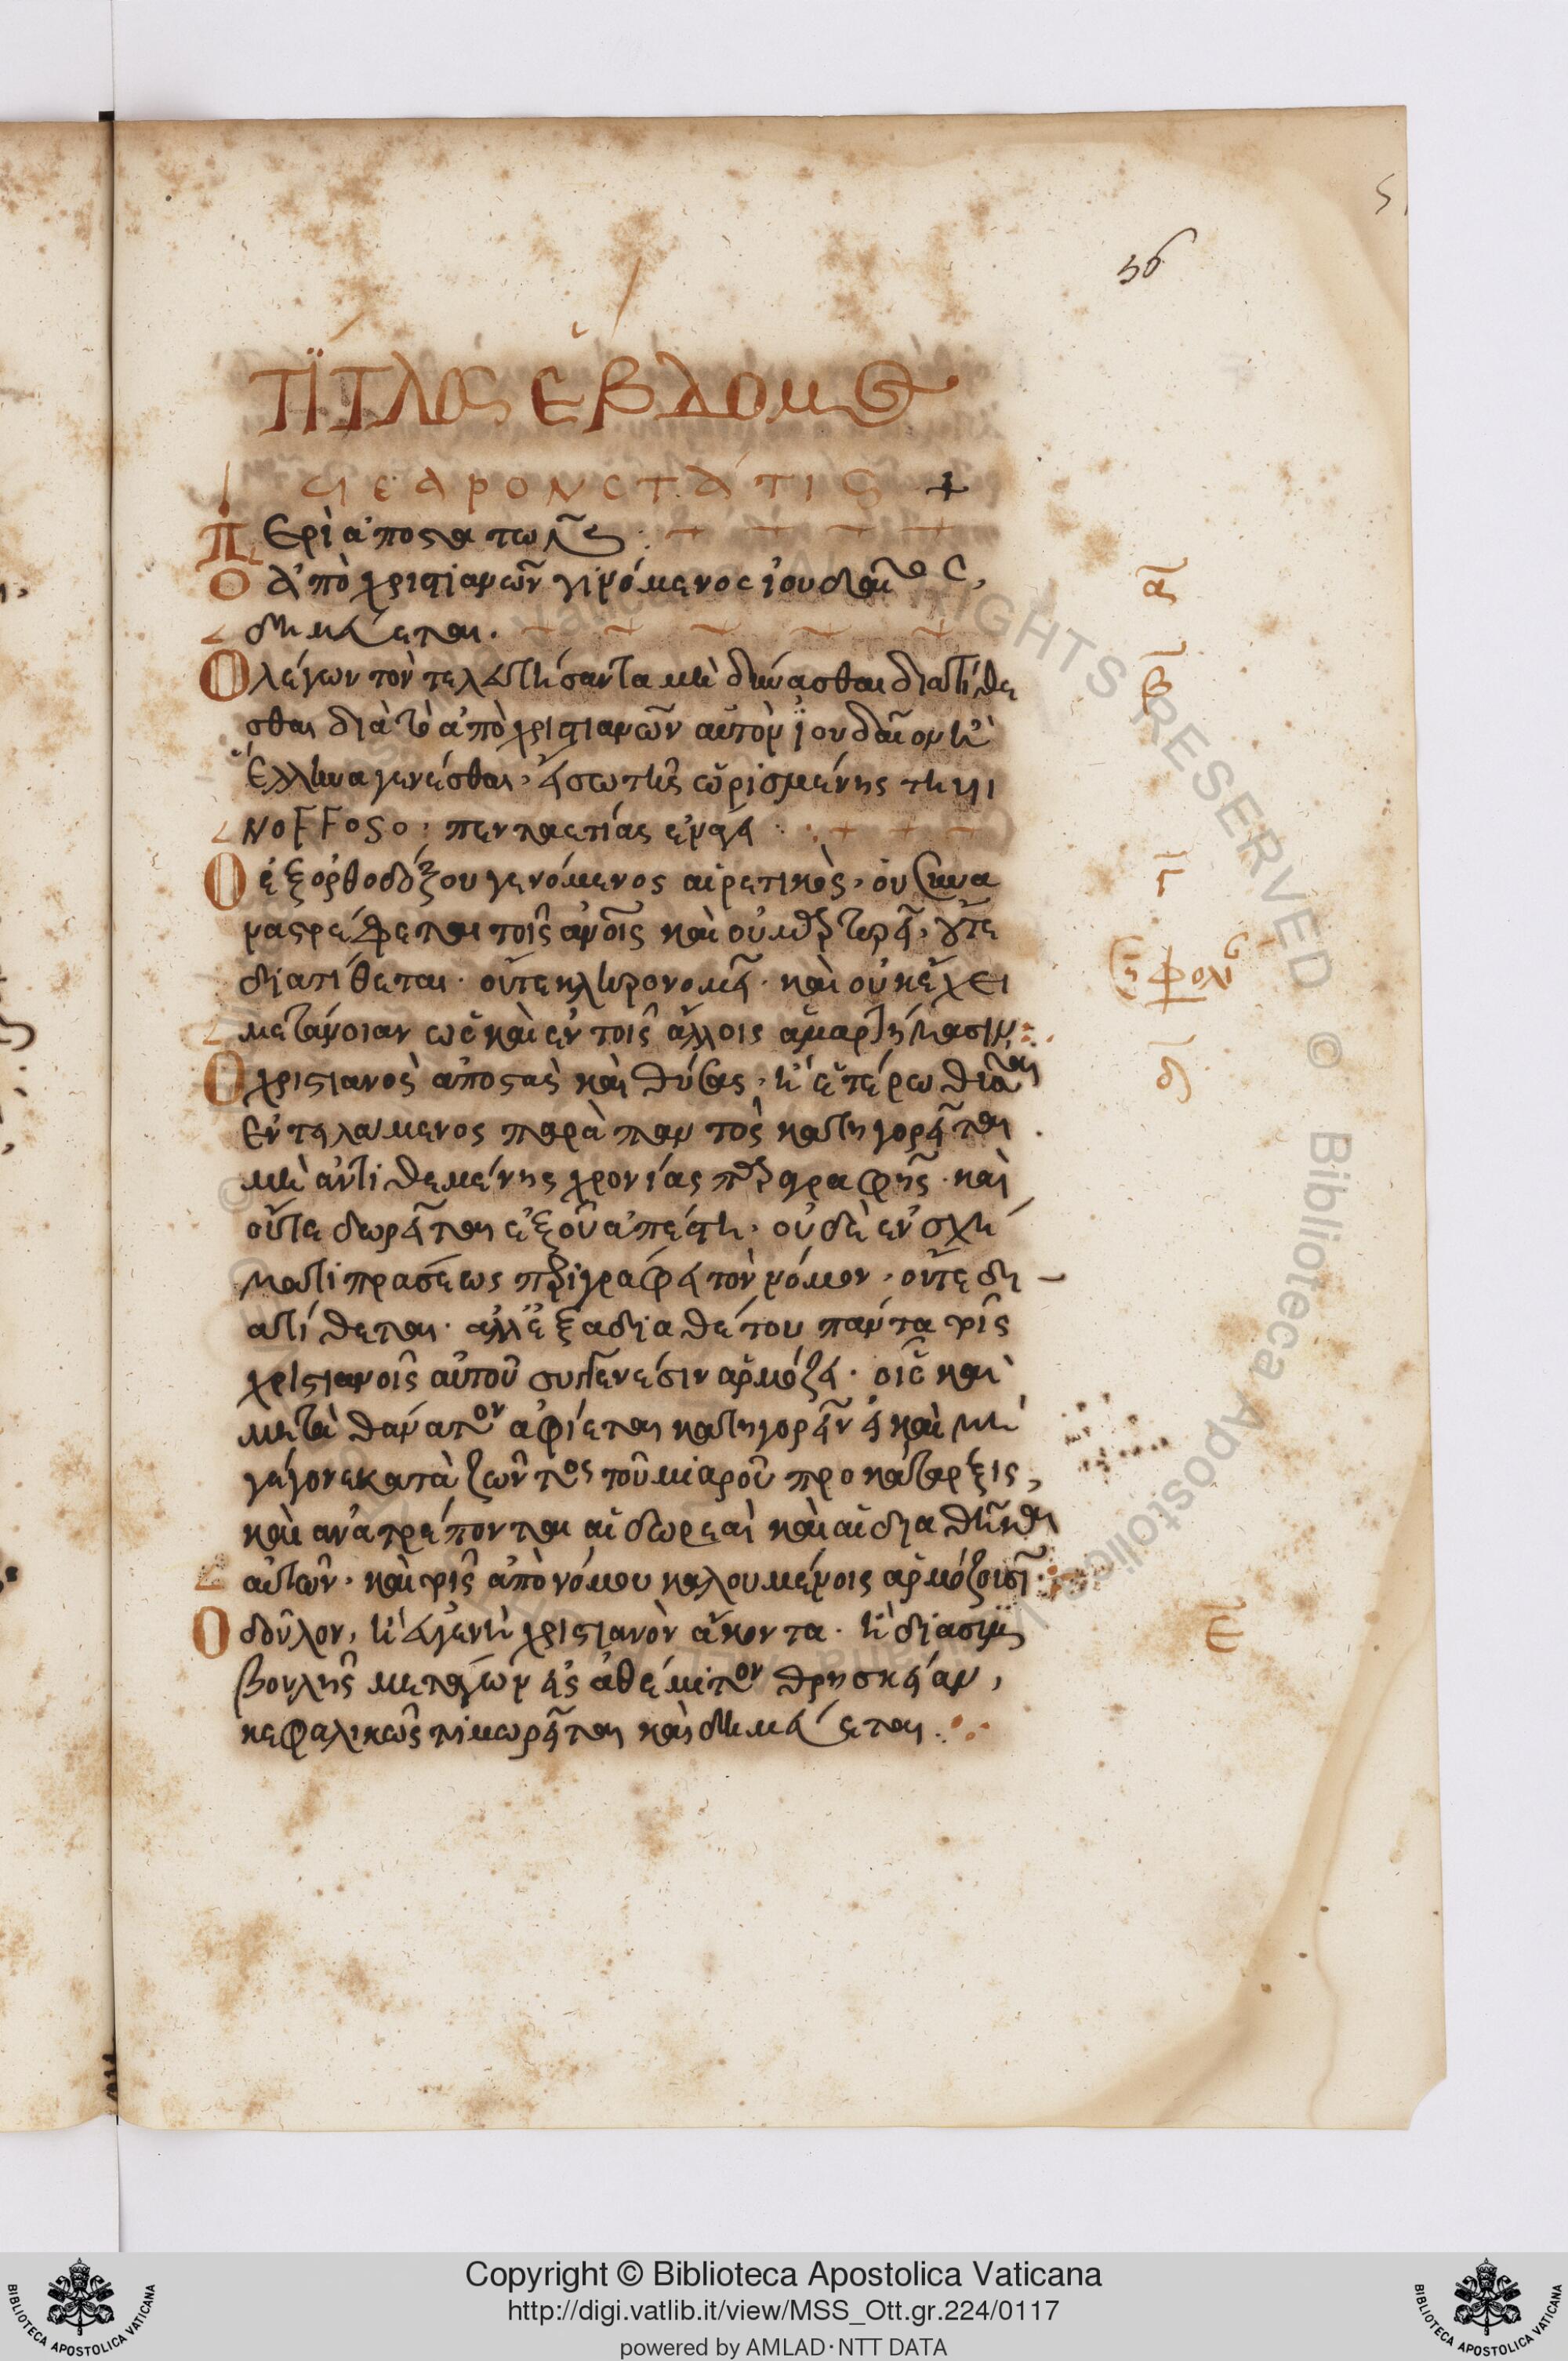 56
Τΐτλος ἕβδομος
CΙΕΑΡΟΝCΤΑΤΙS +
Περὶ ἀποστατῶν
Ὁ ἀπὸ χριστιανῶν γινόμενος ἰουδαῖος,
δημεύεται.
Ὁ λέγων τὸν τελευτήσαντα μὴ δύνασθαι διατίθε
σθαι διὰ τὸ ἀπὸ χριστιανῶν αὐτὸν ἰουδαῖον ἢ
ἕλληνα γενέσθαι, εἴσω τῆς ὡρισμένης τῆ
ΝΟFFΟSΟ πενταετίας
Ὁ ἐξ ὀρθοδόξου γενόμενος αἱρετικὸς, οὐ συνα
ναστρέφεται τοῖς ἀνοις καὶ οὐ μαρτυρεῖ, οὔτε
διατίθεται. οὔτε κληρονομεῖ. καὶ οὐκ ἔχει
μετάνοιαν ὡς καὶ ἐν τοῖς ἄλλοις ἁμαρτήμασιν
Ὁ χριστιανὸς ἀποστὰς καὶ θύσας, ἢ ἑτέρω θῦσαι
ἐντειλάμενος παρὰ παντὸς κατηγορεῖται.
μὴ ἀντιθεμένης χρονίας παραγραφῆς. καὶ
οὔτε δωρεῖται ἐξ οὗ ἀπέστη. οὐδὲ ἐν σχή
ματι πράσεως περιγράφει τὸν νόμον. οὔτε δι
ατίθεται. ἀλλ' ἐξ ἀδιαθέτου πάντα τοῖς
χριστιανοῖς αὐτοῦ συγγενέσιν ἁρμόζει. οἷς καὶ
μετὰ θάνατον ἀφίεται κατηγορεῖν εἰ καὶ μὴ
γέγονε κατὰ ζῶντος τοῦ μιαροῦ προκάταρξις,
καὶ ἀνατρέπονται αἱ δωρεαὶ καὶ αἱ διαθῆκαι
αὐτῶν. καὶ τοῖς ἀπὸ νόμου καλουμένοις ἁρμόζουσι
Ὁ δοῦλον, ἢ εὐγενῆ χριστιανὸν ἄκοντα. ἢ διὰ συμ
βουλῆς μετάγων εἰς ἀθέμιτον θρησκείαν,
κεφαλικῶς τιμωρεῖται καὶ δημεύεται.
α
β
γ
δ
ε
Copyright © Biblioteca Apostolica Vaticana
http://digi.vatlib.it/view/MSS_Ott.gr.224/0117
powered by AMLAD·NTT DATA
BIBLIOTECA APOSTOLICA VATICANA
BIBLIOTECA APOSTOLICA VATICANA